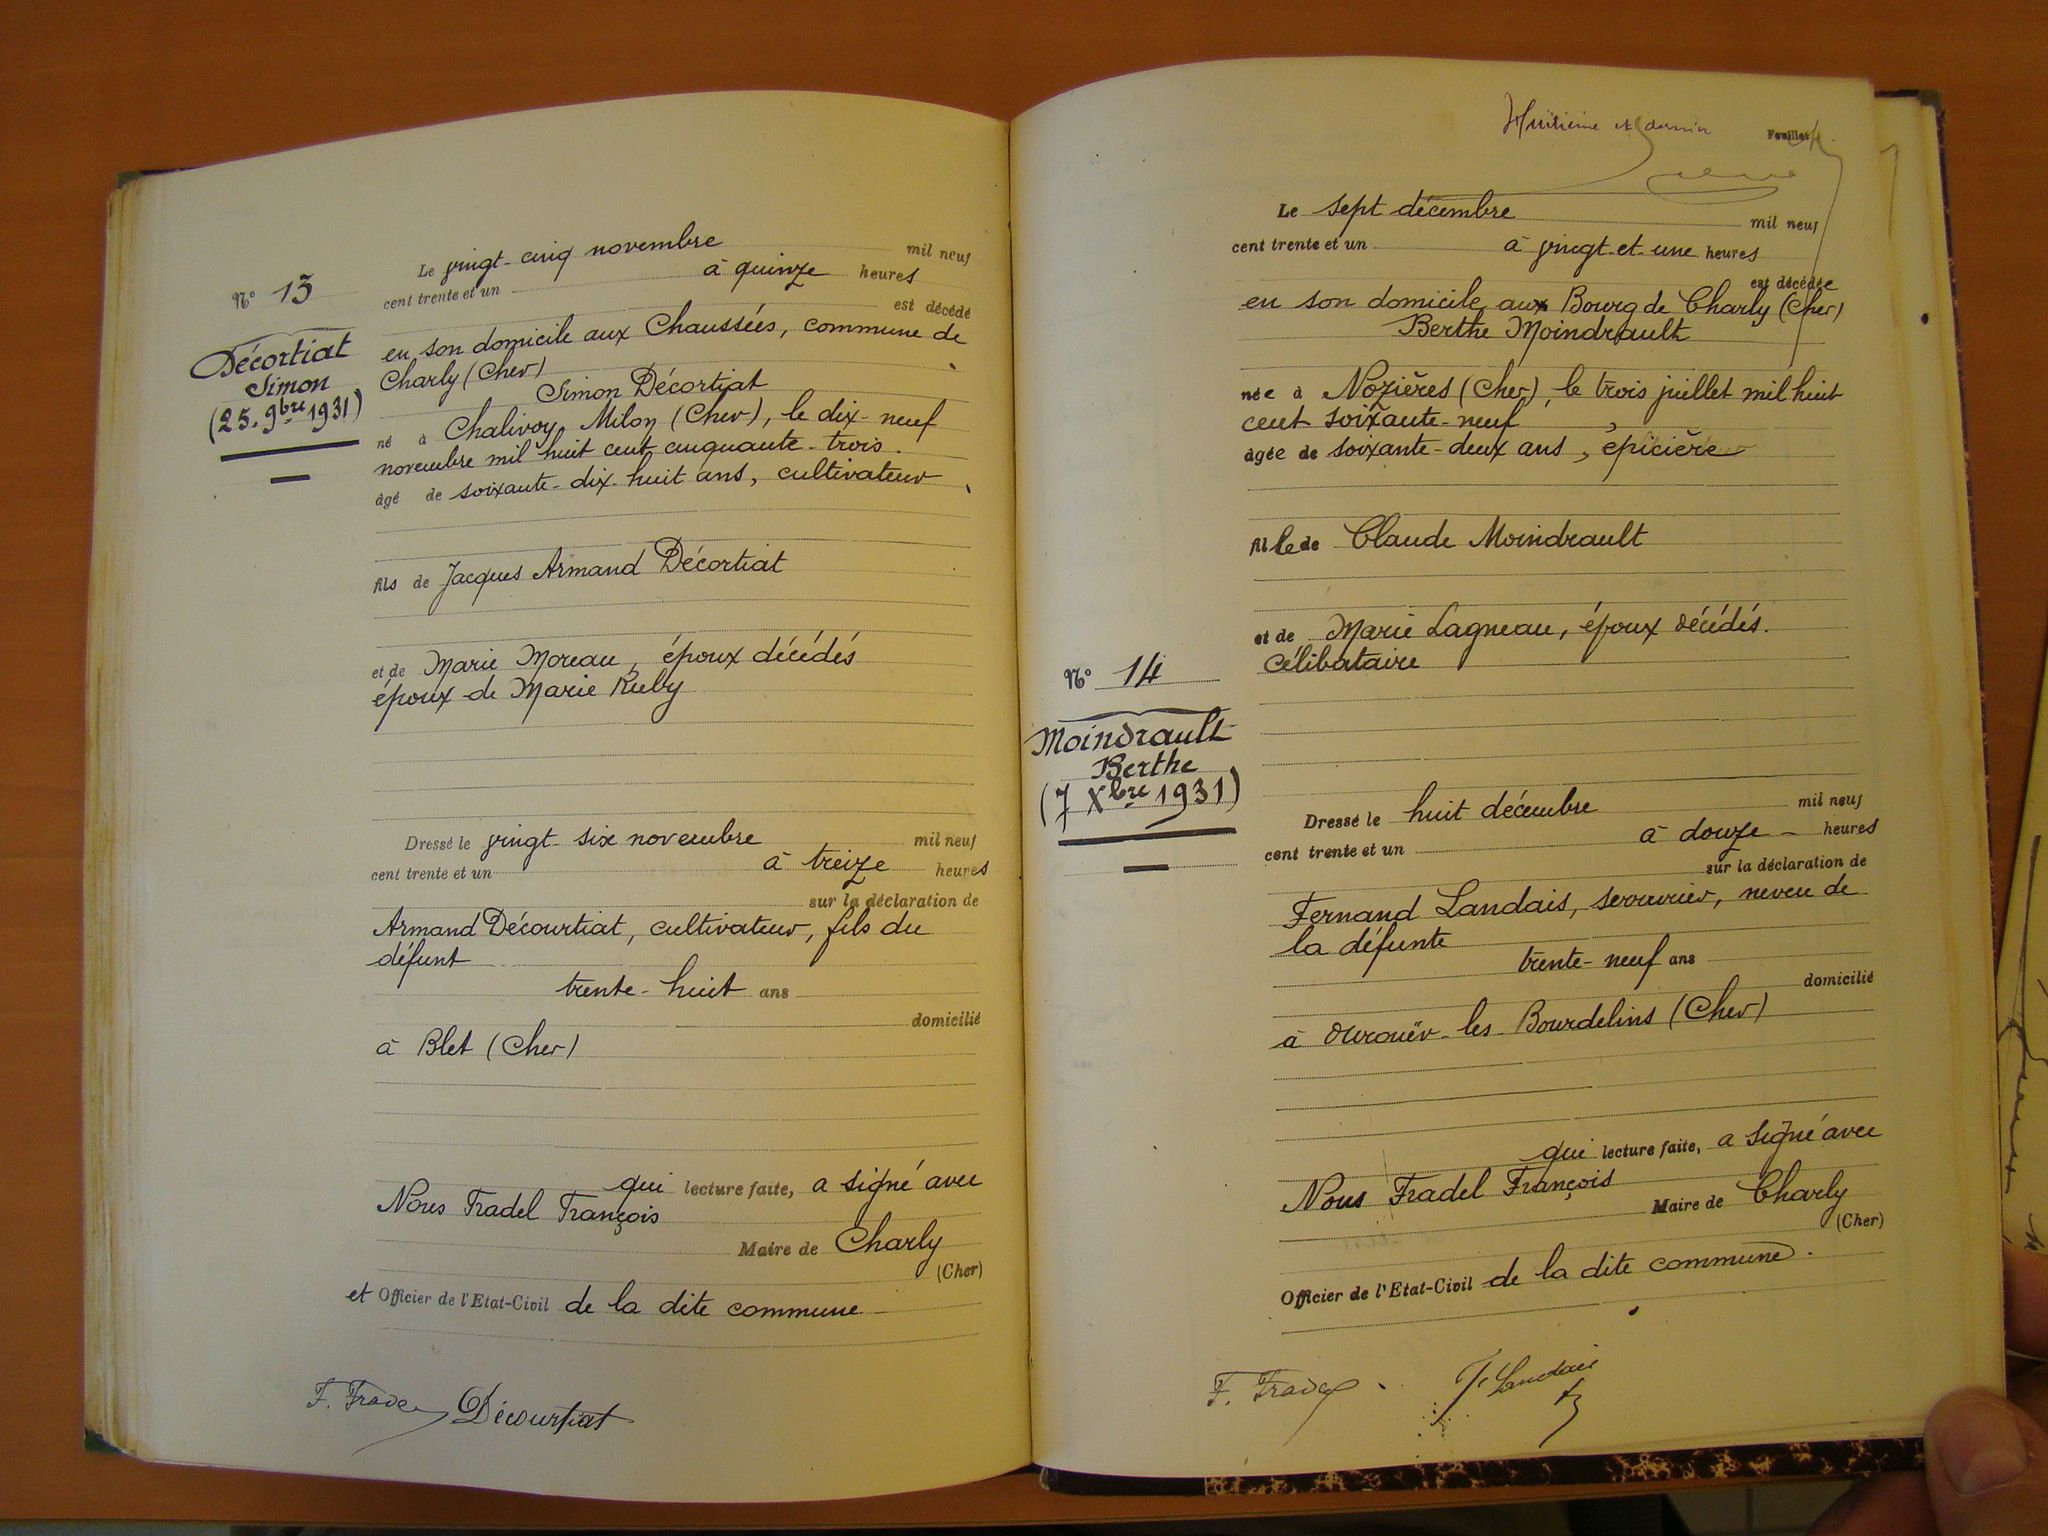 Le vingt-cinq novembre mil neuf
Nº 13 cent trente et un à quinze heures
est décédé
Décortiat
Simon
(25. 9bre 1931)
en son domicile aux Chaussées, commune de
Charly (Cher)
Simon Décortiat
né à Chalivoy Milon (Cher), le dix-neuf
novembre mil huit cent cinquante-trois.
âgé de soixante-dix-huit ans, cultivateur
fils de Jacques Armand Décortiat
et de Marie Moreau, époux décédés
époux de Marie Ruby
Dressé le vingt-six novembre mil neuf
cent trente et un à treize heures
sur la déclaration de
Armand Décourtiat, cultivateur, fils du
défunt
trente-huit ans
domicilié
à Blet (Cher)
qui lecture faite, a signé avec
Nous Fradel François
Maire de Charly
(Cher)
et Officier de l'Etat-Civil de la dite commune
F. Fradel Décourtiat
Huitième et dernier Feuillet
Le sept décembre mil neuf
cent trente et un à vingt-et-une heures
est décédée
en son domicile aux Bourg de Charly (Cher)
Berthe Moindrault
née à Nozières (Cher), le trois juillet mil huit
cent soixante-neuf
âgée de soixante-deux ans, épicière
fille de Claude Moindrault
et de Marie Lagneau, époux décédés.
célibataire
Nº 14
Moindrault
Berthe
(7 Xbre 1931)
Dressé le huit décembre mil neuf
cent trente et un à douze heures
sur la déclaration de
Fernand Landais, serrurier, neveu de
la défunte
trente-neuf ans
domicilié
à Ourouër-les Bourdelins (Cher)
qui lecture faite, a signé avec
Nous Fradel François
Maire de Charly
(Cher)
Officier de l'Etat-Civil de la dite commune.
F. Fradel F. Landais